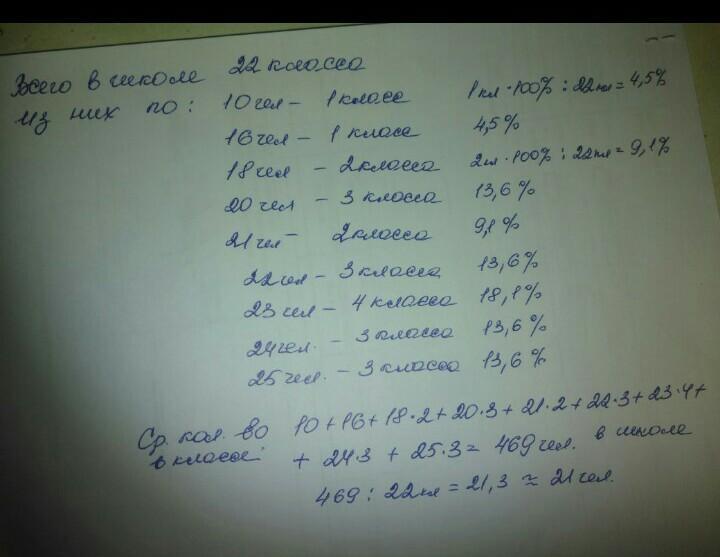 Всего в школе 22 класса
Из них по: 10 чел – 1 класс 1 кл · 100% : 22 кл = 4,5%
16 чел – 1 класс 4,5%
18 чел – 2 класса 2 кл · 100% : 22 кл = 9,1%
20 чел – 3 класса 13,6%
21 чел – 2 класса 9,1%
22 чел – 3 класса 13,6%
23 чел – 4 класса 18,1%
24 чел. – 3 класса 13,6%
25 чел. – 3 класса 13,6%
Ср. кол. во 10 + 16 + 18·2 + 20·3 + 21·2 + 22·3 + 23·4 +
в классе: + 24·3 + 25·3 = 469 чел. в школе
469 : 22 кл = 21,3 ≈ 21 чел.